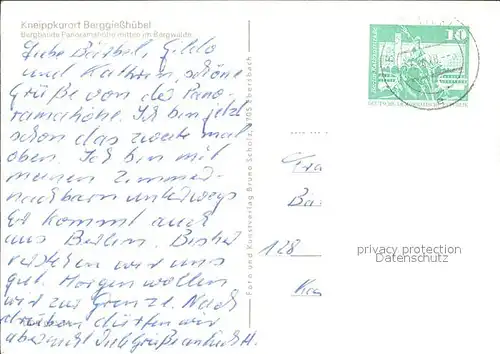 Kneippkurort Berggießhübel
Bergbaude Panoramahöhe mitten im Bergwalde
Liebe Bärbel, Guido
und Kathrin, schöne
Grüße von der Pano-
ramahöhe. Ich bin jetzt
schon das zweite mal
oben. Ich bin mit
meinen Zimmer-
nachbarn unterwegs
Er kommt auch
aus Berlin. Bisher
verstehen wir uns
gut. Morgen wollen
wir zur Grenze. Nach
drüben dürfen wir
aber nicht
Foto und Kunstverlag Bruno Scholz, 8705 Ebersbach
10
Fra
Bä
128
privacy protection
Datenschutz